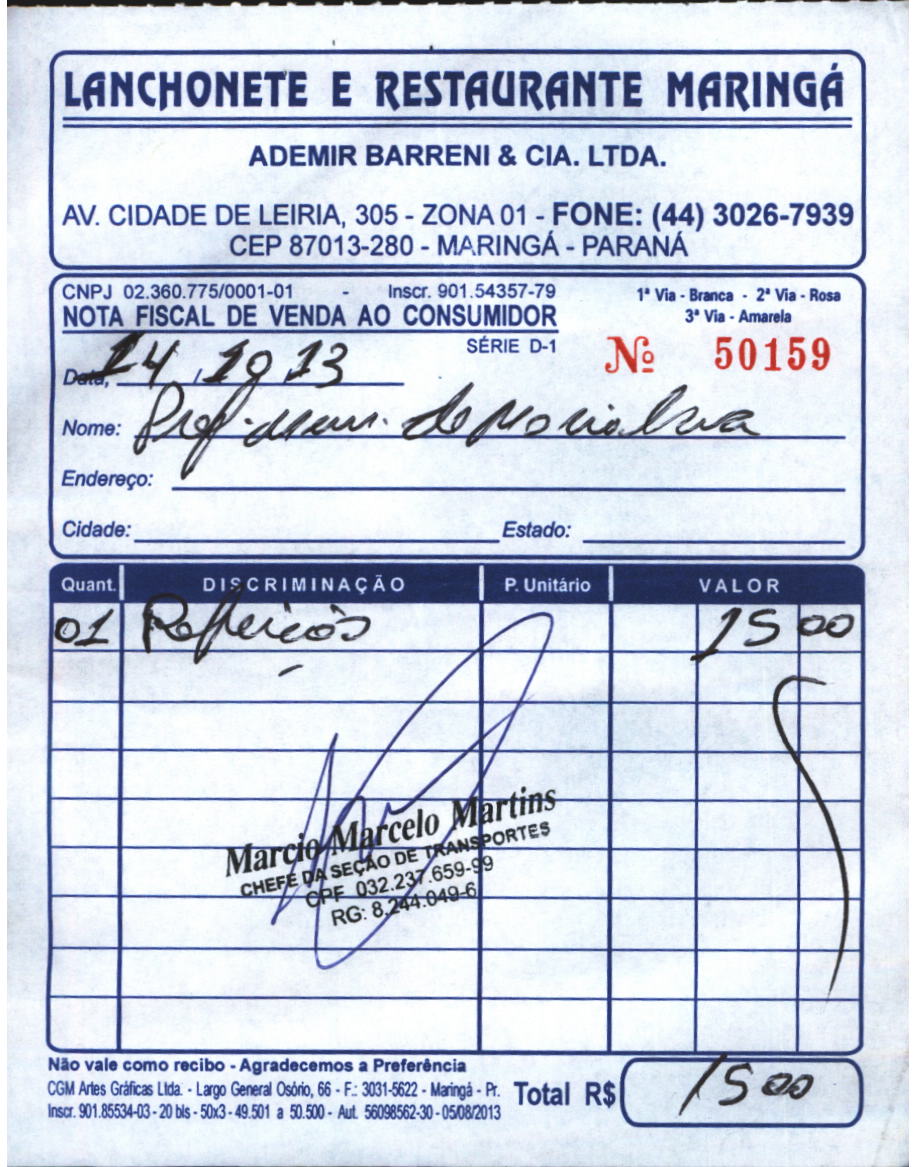 LANCHONETE E RESTAURANTE MARINGÁ
ADEMIR BARRENI & CIA. LTDA.
AV. CIDADE DE LEIRIA, 305 - ZONA 01 - FONE: (44) 3026-7939
CEP 87013-280 - MARINGÁ - PARANÁ
CNPJ 02.360.775/0001-01 - Inscr. 901.54357-79
NOTA FISCAL DE VENDA AO CONSUMIDOR
SÉRIE D-1
1ª Via - Branca - 2ª Via - Rosa
3ª Via - Amarela
Nº 50159
Data, 14 / 10 13
Nome: Pref. Mun. de Marialva
Endereço:
Cidade: Estado:
Quant. DISCRIMINAÇÃO P. Unitário VALOR
01 Refeições 15 00
Marcio Marcelo Martins
CHEFE DA SEÇÃO DE TRANSPORTES
CPF 032.237.659-99
RG: 8.244.049-6
Não vale como recibo - Agradecemos a Preferência
CGM Artes Gráficas Ltda. - Largo General Osório, 66 - F.: 3031-5622 - Maringá - Pr.
Inscr. 901.85534-03 - 20 bls - 50x3 - 49.501 a 50.500 - Aut. 56098562-30 - 05/08/2013
Total R$ 15 00